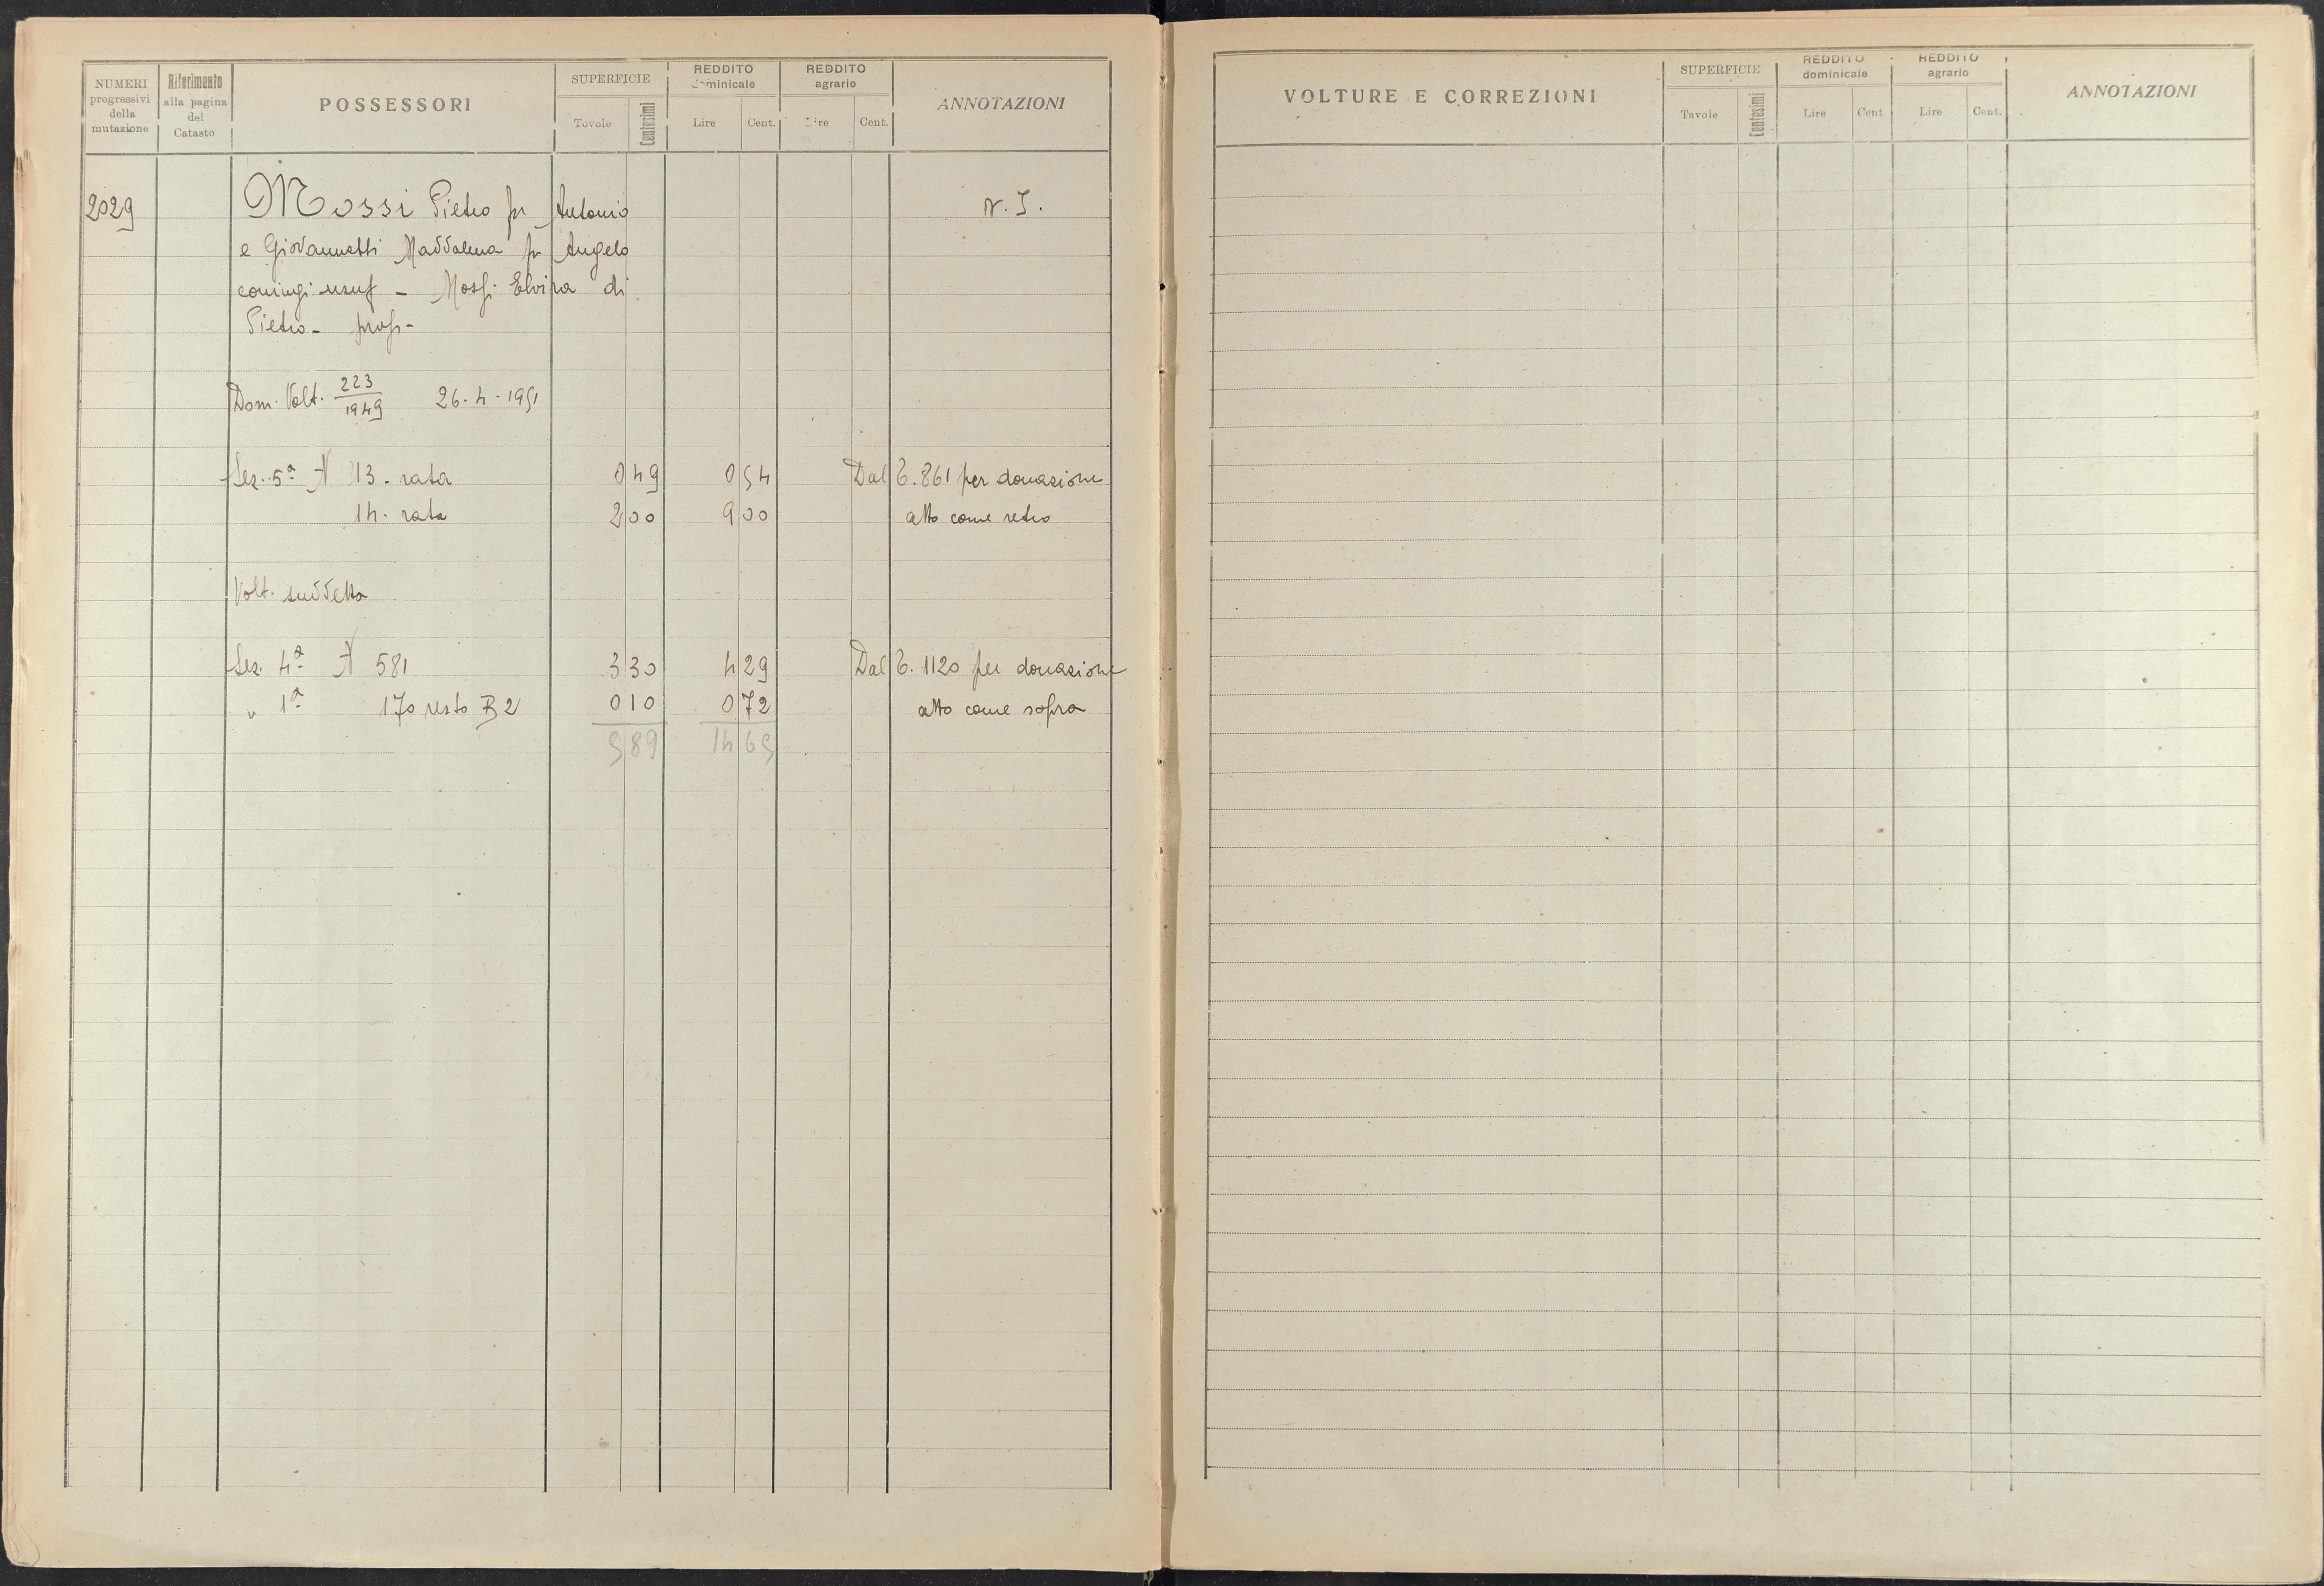 NUMERI progressivi della mutazione | Riferimento alla pagina del Catasto | POSSESSORI | SUPERFICIE Tavole Centesimi | REDDITO dominicale Lire Cent. | REDDITO agrario Lire Cent. | ANNOTAZIONI
2029 Mossi Pietro fu Antonio N. I.
e Giovannetti Maddalena fu Angelo
coniugi usuf - Mossi Elvira di
Pietro - prop -
Dom. Volt. 223/1949 26-4-1951
Sez. 5ª A 13 - rata 0 49 0 54 Dal C. 861 per donazione
14 - rata 2 00 9 00 atto come retro
Volt. suddetta
Sez. 4ª A 581 3 30 4 29 Dal C. 1120 per donazione
" 1ª 170 resto B2 0 10 0 72 atto come sopra
5 89 14 65
VOLTURE E CORREZIONI | SUPERFICIE Tavole Centesimi | REDDITO dominicale Lire Cent | REDDITO agrario Lire Cent. | ANNOTAZIONI